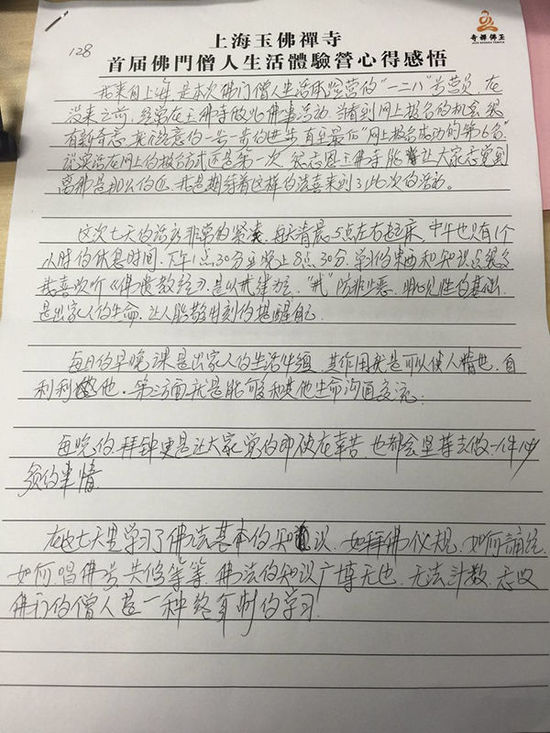 128
上海玉佛禪寺
首届佛門僧人生活體驗營心得感悟
玉佛禪寺
我来自上海,是本次佛门僧人生活体验营的“一二八”号营员,在
没来之前,经常在玉佛寺做些佛事活动,当看到网上报名的机会
有新奇感,
说实话在网上的报名方式还是第一次,玉佛寺能让大家感觉到
离佛是那么的近,我是期待着这样的法喜来到了此次的活动。
这次七天的活动非常的紧凑,每天清晨5点左右起床,中午也只有1个
小时的休息时间,下午1点30分至晚上8点30分,学习的东西和知识点很多
我喜欢听《佛遗教经》是以戒律为主,“戒”防非止恶,明心见性的基础,
是出家人的生命,让人能敬时刻的提醒自己。
每日的早晚课是出家人的生活,其作用就是可以使人精进,自
利利他,第二方面就是能够和其他生命沟通交流。
每晚的拜钟更是让大家觉的即使在辛苦,也都会坚持去做一件
的事情。
在这七天里学习了佛法基本的知识,如拜佛仪规,如何诵经,
如何唱佛号 共修等等 佛法的知识广博无边,无法计数,
佛门的僧人是一种终身制的学习.